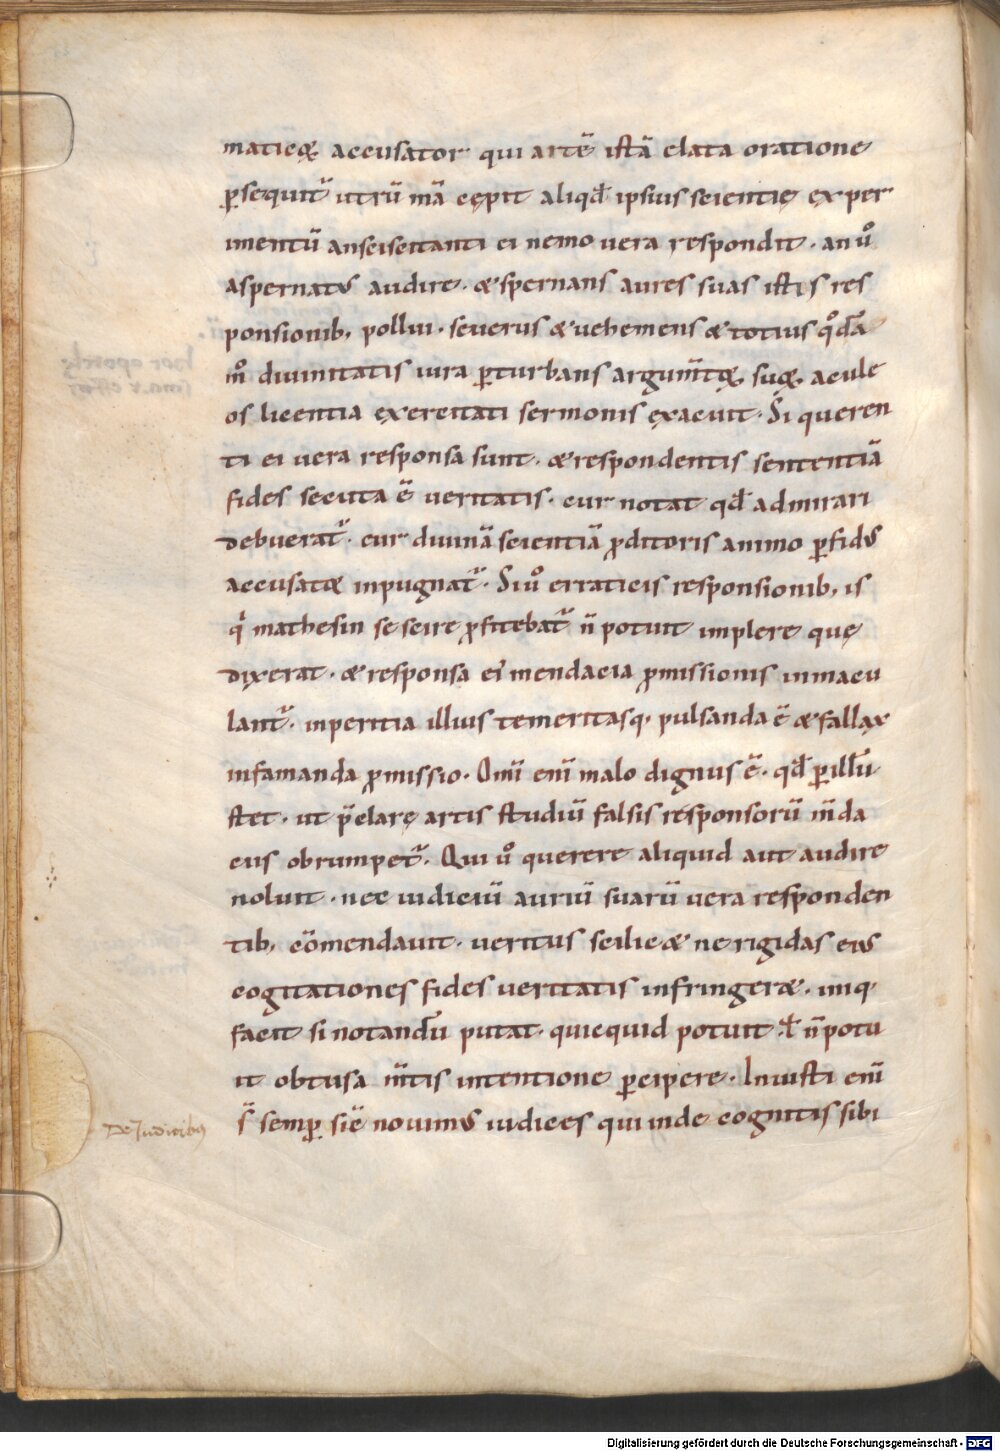 maticoꝝ accusator qui artē istā elata oratione
ꝑsequit᷑ utrū mā cępit aliqđ ipsius scientię exper
imentū ansciscitanti ei nemo vera respondit · an uͦ
aspernatus audire · & spernans aures suas istis res
ponsionib; pollui · severus & vehemens & totius qͦdā
mͦ divinitatis iura ꝑturbans argum̄toꝝ suoꝝ acule
os licentia exercitati sermonis exacuit · Si queren
ti ei vera responsa sunt · & respondentis sententiā
fides secuta ē veritatis · cur notat qđ admirari
debuerat᷑ · cur divinā scientiā ꝓditoris animo ꝑfidus
accusator inpugnat᷑ · Siuͦ erraticis responsionib; is
qͥ mathesin se scire ꝓfitebat᷑ n̄ potuit implere quę
dixerat · & responsa ei mendacia ꝓmissionis inmacu
lant᷑ · inperitia illius temeritasq; pulsanda ē & fallax
infamanda ꝓmissio · Om̄i enī malo dignus ē · qđ ꝑ illū
stet · ut p̄clarę artis studiū falsis responsorū m̄da
ciis obrumpet᷑ · Qui uͦ querere aliquid aut audire
noluit · nec iudiciū auriū suarū vera responden
tib; cōmendavit · veritus scilic& ne rigidas eius
cogitationes fides veritatis infringer& · iniq;
facit si notandū putat · quicquid potuit ł n̄ potu
it obtusa m̄tis intentione ꝑcipere · Iniusti enī
s̄ semꝑ sić novimus iudices qui inde cognitis sibi
De Judicibus